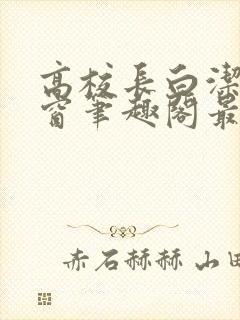 高校长白潔
窗筆趣閣最
赤石赫赫 山田